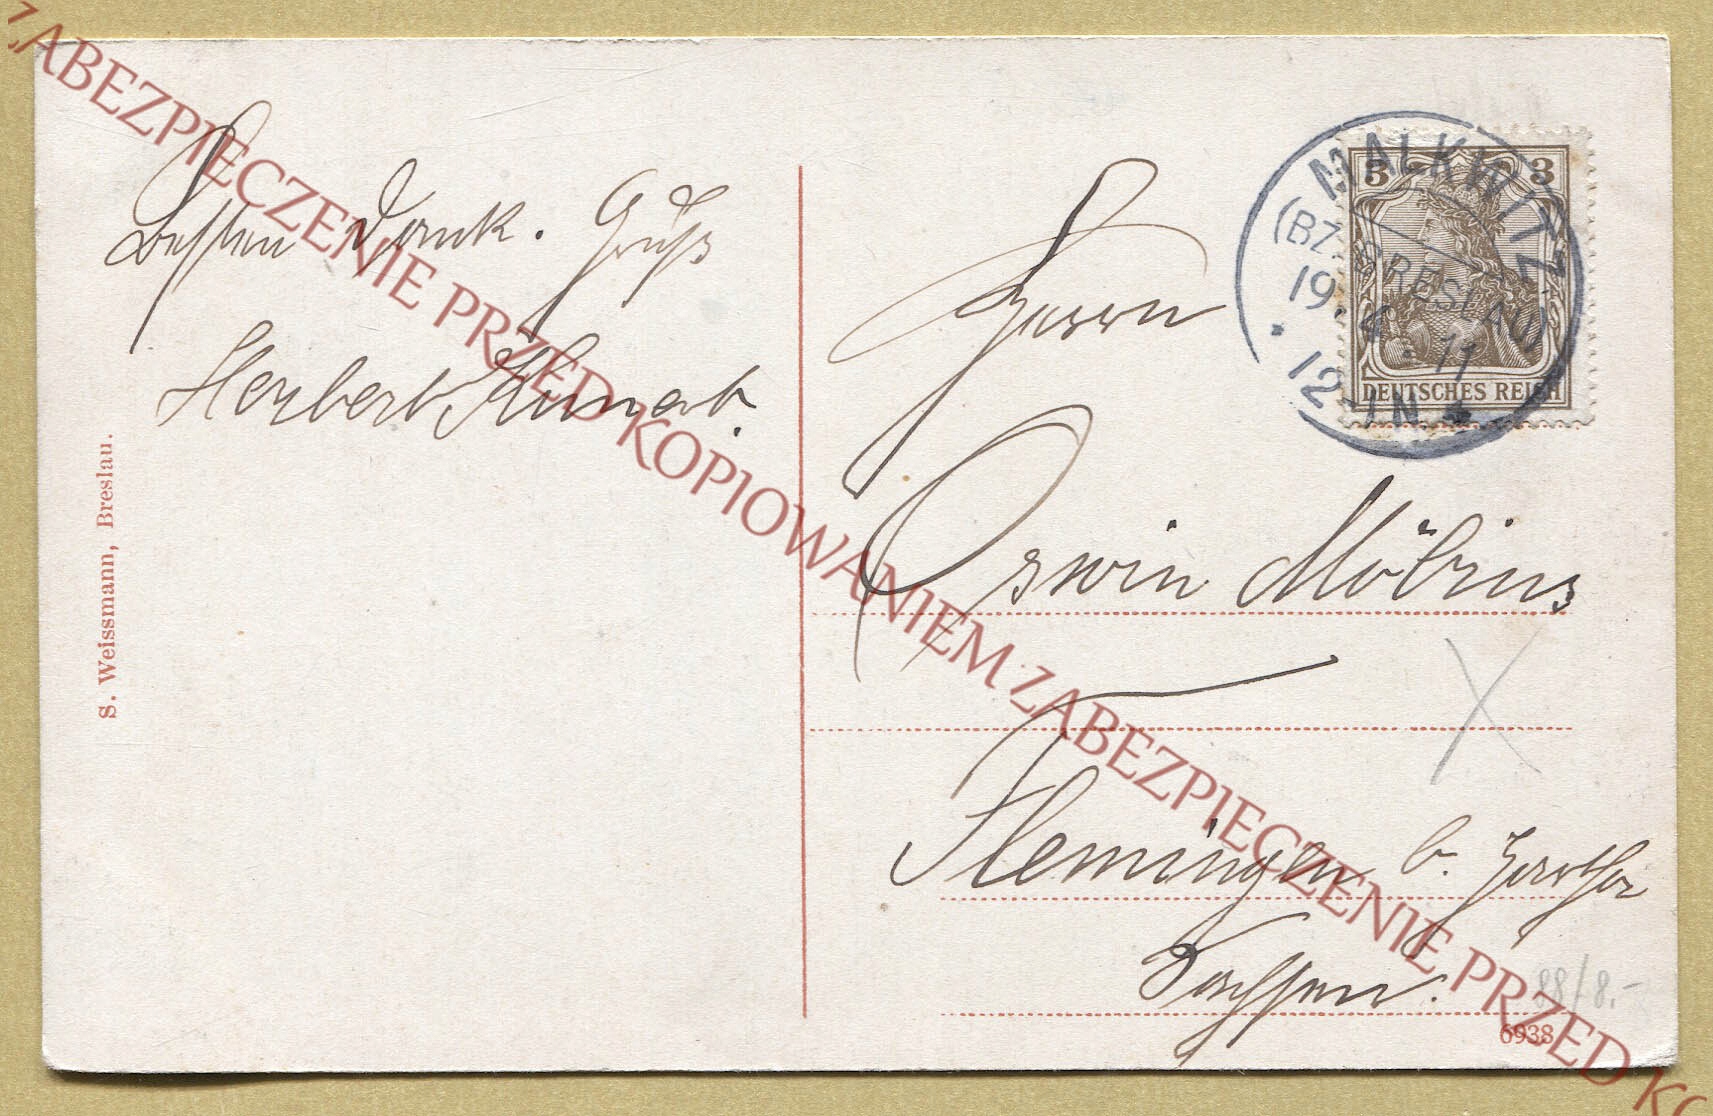 ZABEZPIECZENIE PRZED KOPIOWANIEM ZABEZPIECZENIE PRZED KO
Besten Dank. Gruß
Herbert
S. Weissmann, Breslau.
MALKWITZ
(BZ. BRESLAU)
19.4.11
12-1N.
3 3
DEUTSCHES REICH
Herrn
Oswin Möbius
Flemmingen b.
Sachsen.
88/8.-
6938